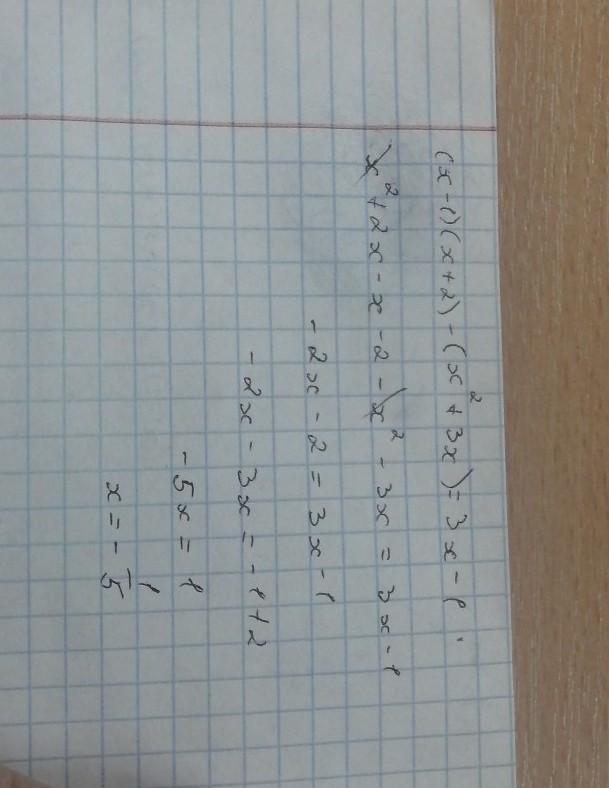 (x-1)(x+2)-(x²+3x)=3x-1.
x²+2x-x-2-x²-3x=3x-1
-2x-2=3x-1
-2x-3x=-1+2
-5x=1
x=-1/5